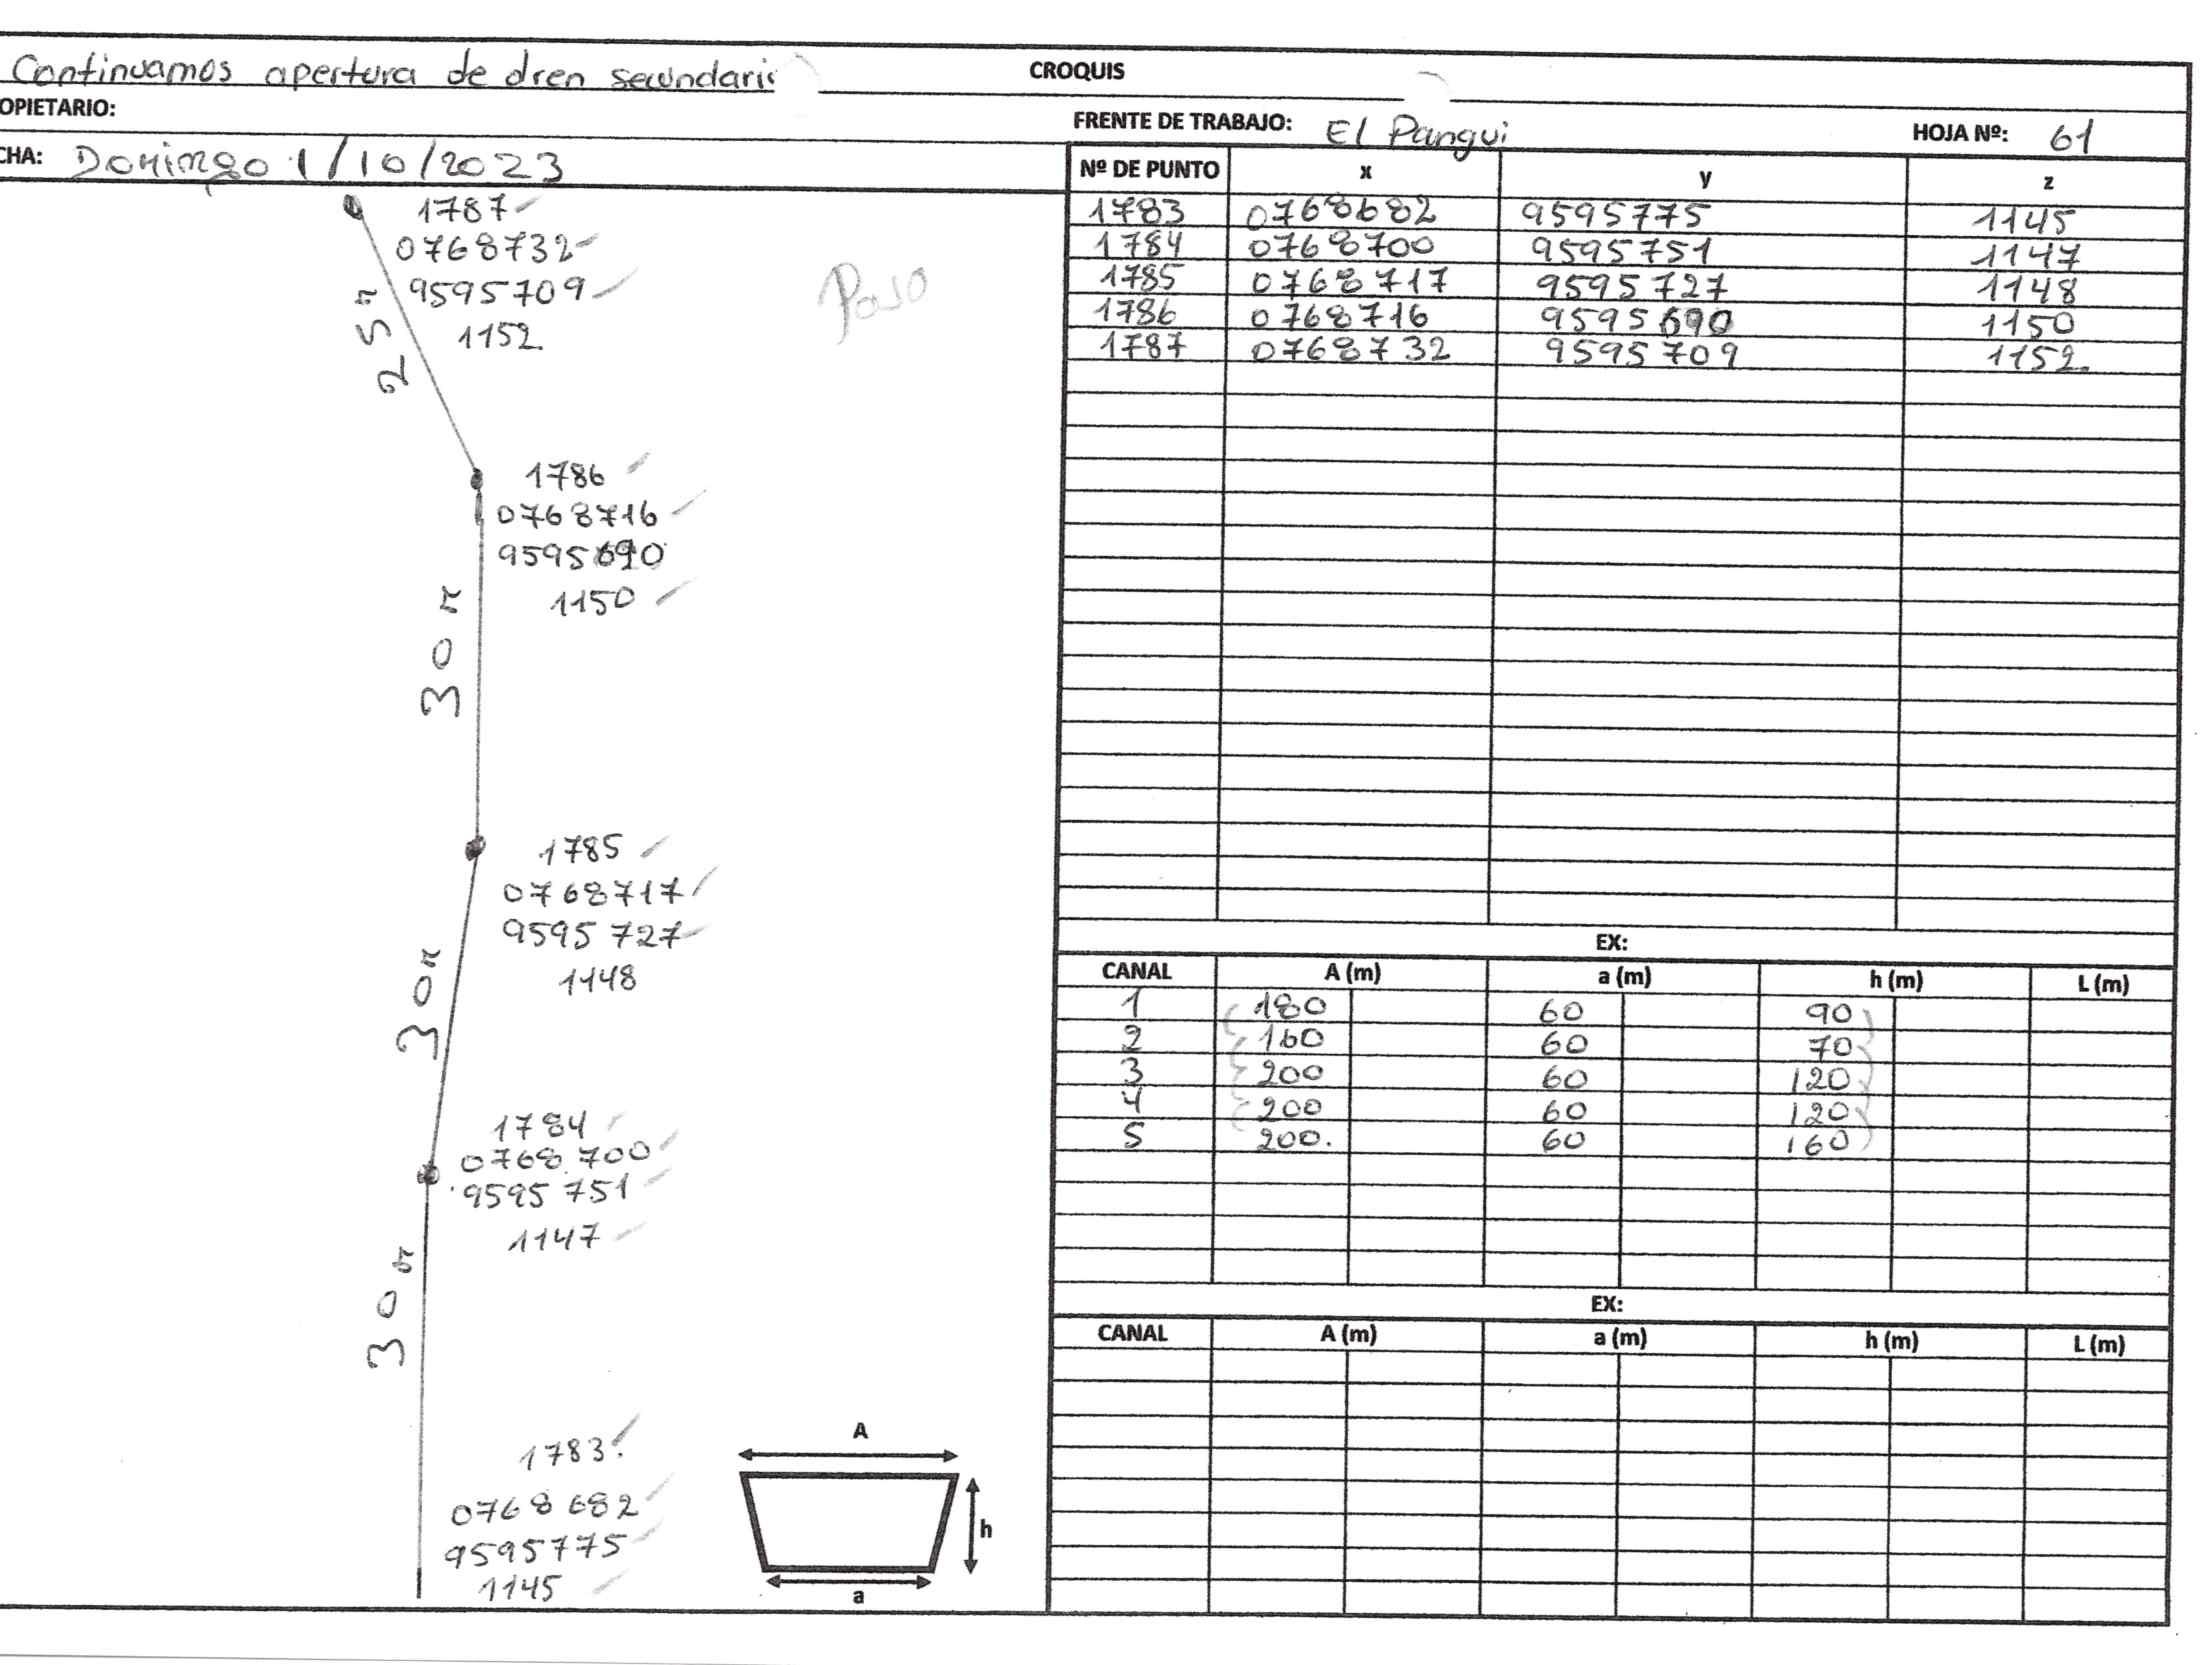 Continuamos apertura de dren secundario
CROQUIS
OPIETARIO:
FRENTE DE TRABAJO: El Pangui
HOJA Nº: 61
CHA: Domingo 1/10/2023
1787
0768732
9595709
1152.
25m
1786
0768716
9595690
1150
30m
1785
0768717
9595727
1148
30m
1784
0768700
9595751
1147
30m
1783
0768682
9595775
1145
A
h
a
Nº DE PUNTO x y z
1783 0768682 9595775 1145
1784 0768700 9595751 1147
1785 0768717 9595727 1148
1786 0768716 9595690 1150
1787 0768732 9595709 1152.
EX:
CANAL A (m) a (m) h (m) L (m)
1 180 60 90
2 160 60 70
3 200 60 120
4 200 60 120
5 200. 60 160
EX:
CANAL A (m) a (m) h (m) L (m)